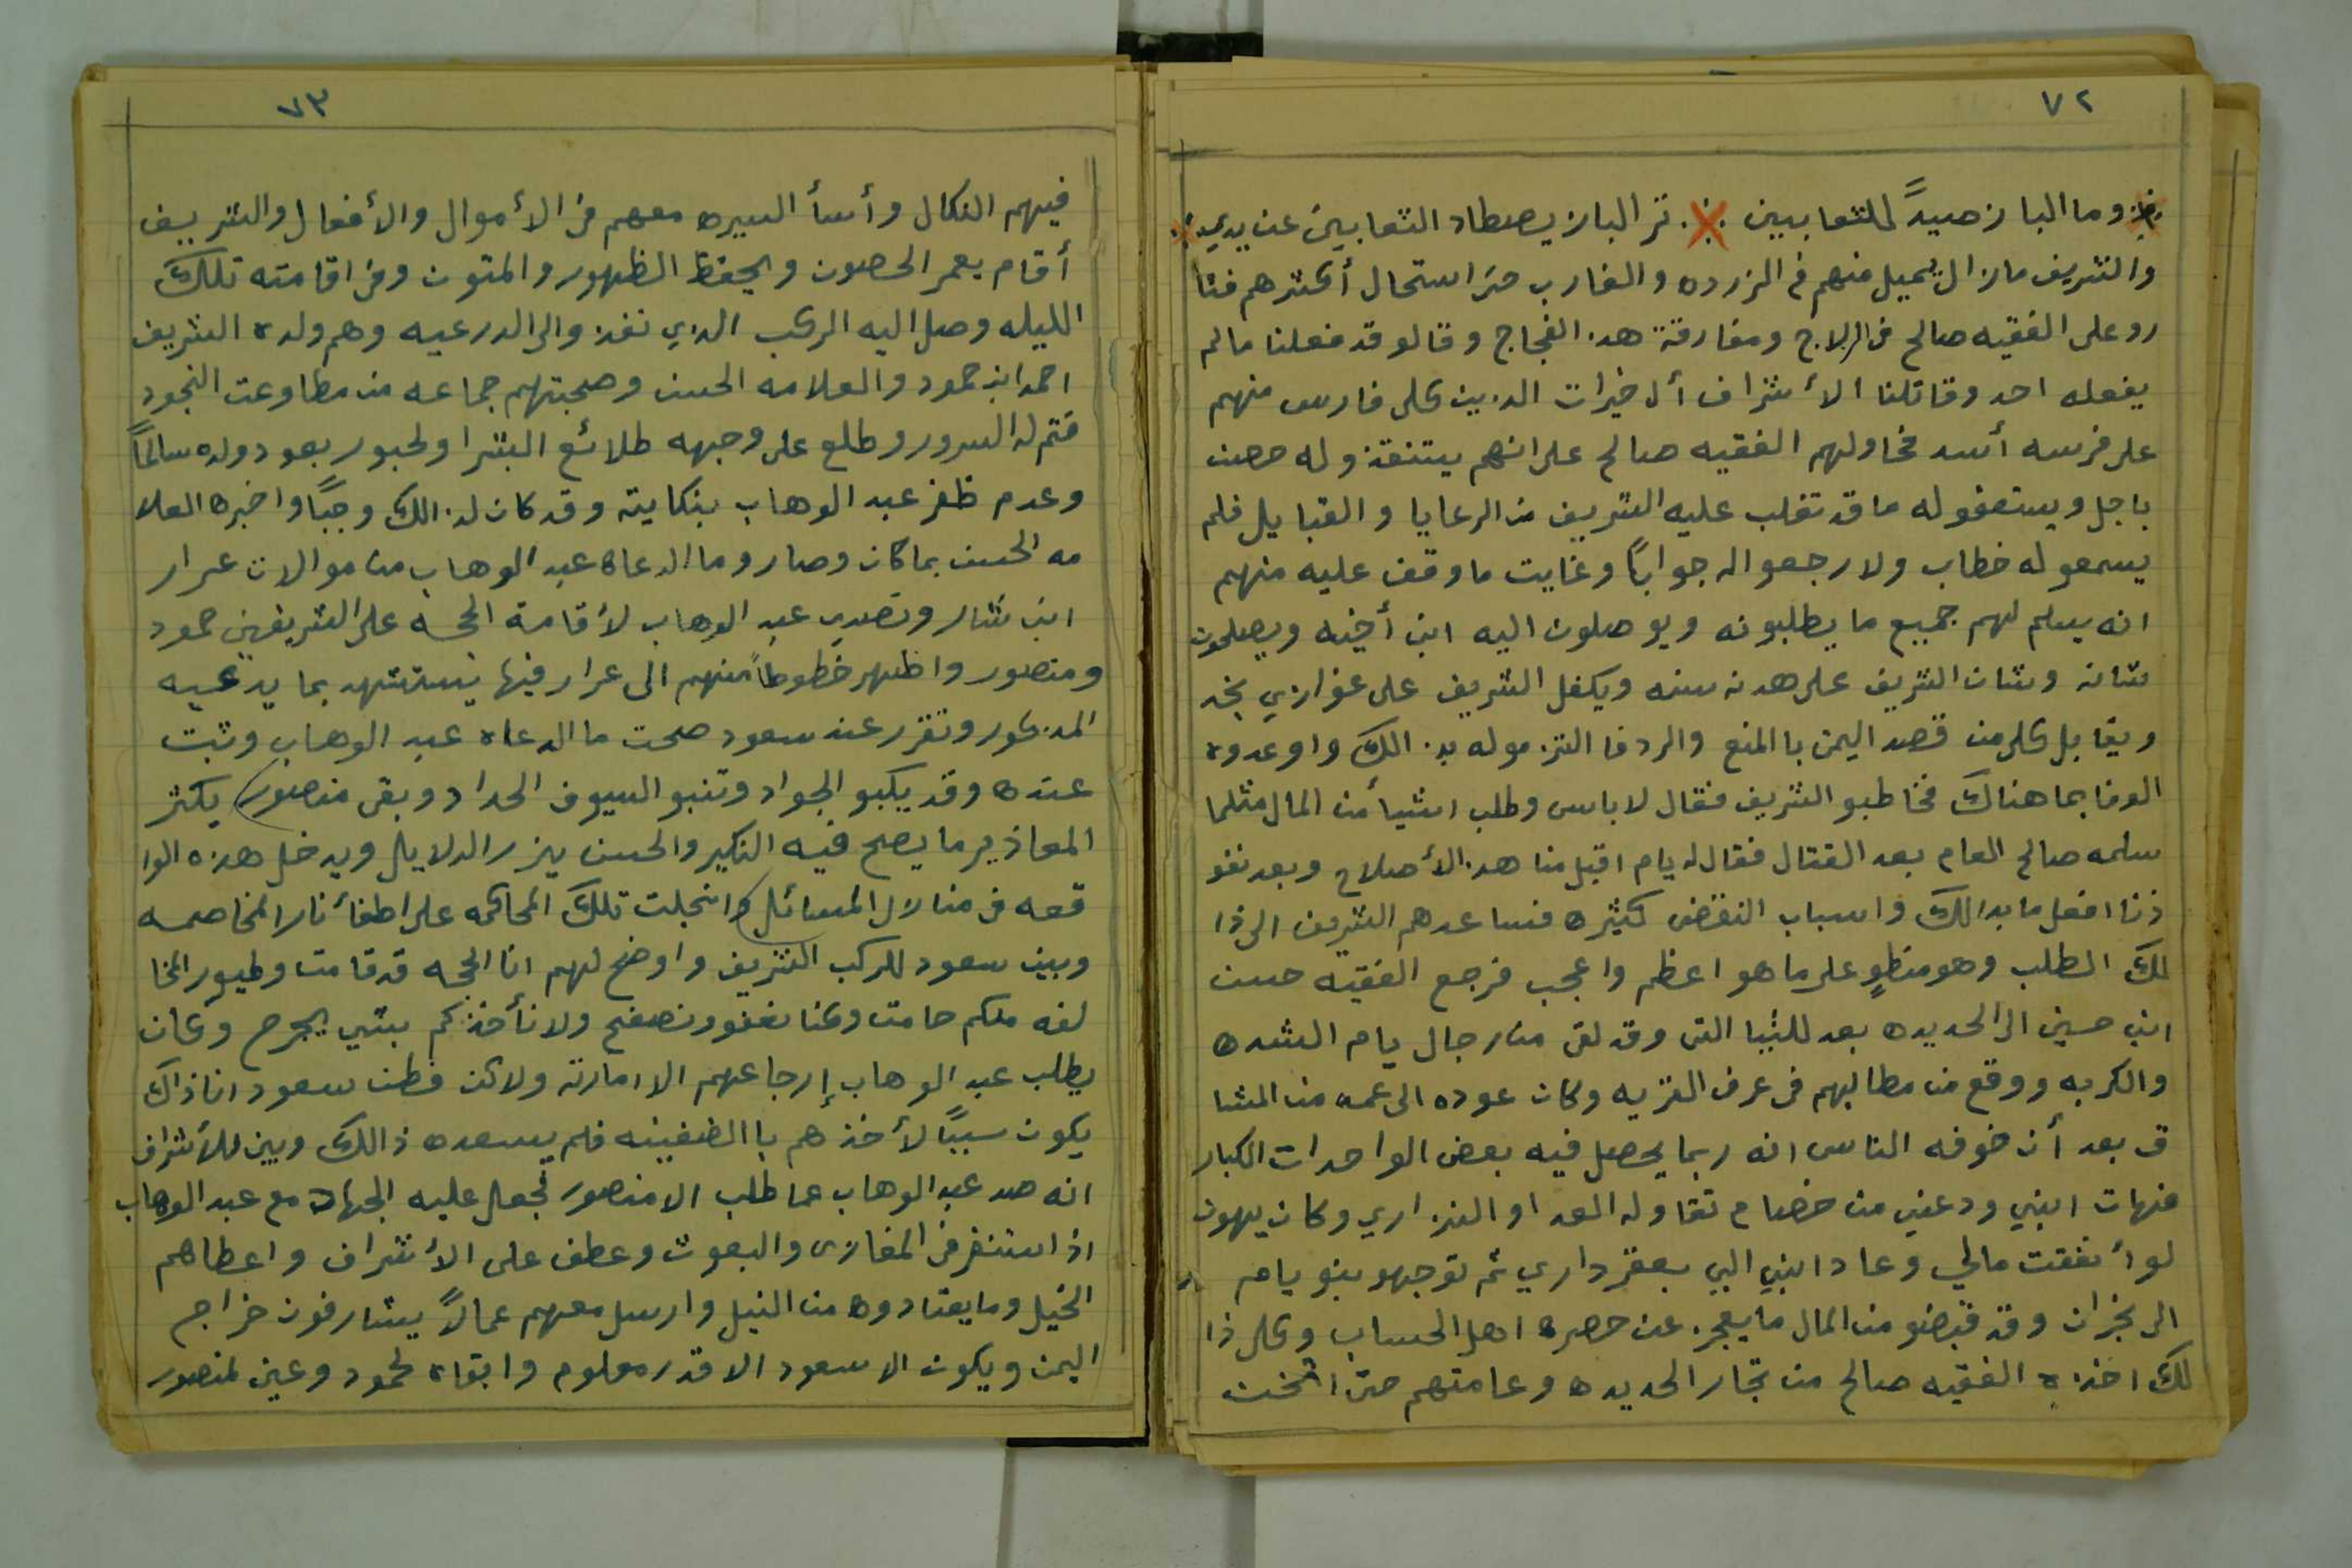 ٧٢
وما الباز صيدً للثعابين ترَ الباز يصطاد الثعابين عن يدي
والشريف مازال يميل منهم في الزرده والغارب حتى استحال أكثرهم فثا
رو على الفقيه صالح في الرلاج ومفارقة هذ الفجاج وقالو قد فعلنا مالم
يفعله احد وقاتلنا الأشراف أل خيرات الذين كلى فارس منهم
على فرسه أسد فحاولهم الفقيه صالح على انهم يتنقذو له حصن
باجل ويستعفو له ما قد تغلب عليه الشريف من الرعايا والقبايل فلم
يسمعو له خطاب ولا رجعو اله جوابًا وغايت ما وقف عليه منهم
انه يسلم لهم جميع ما يطلبونه ويوصلون اليه ابن أخيه ويصلحون
شانه وشان الشريف على هدنه سنه ويكفل الشريف على غوازي نجد
ويقابل كلى من قصد اليمن با المنع والردفا التزمو له بذ الك واوعدوه
الوفا بما هناك فخاطبو الشريف فقال لا باس وطلب اشيأ من المال مثلما
سلمه صالح العام بعد القتال فقال له يام اقبل منا هذ الأصلاح وبعد نفو
ذنا افعل ما بدالك واسباب النقض كثيره فساعدهم الشريف الى ذا
لك الطلب وهو منطوٍ على ما هو اعظم واعجب فرجع الفقيه حسن
ابن حسين الى الحديده بعد للتيا التى وقد لقى من رجال يام الشده
والكربه ووقع من مطالبهم فى عرف القربه وكان عوده الى عمه من المشا
ق بعد أن خوفه الناس انه ربما يحصل فيه بعض الواحدات الكبار
فنهات ابني ودعني من خصام تقاوله العد او النزاري وكان يهون
لو أنفقت مالي وعاد ابني اليي بعقر داري ثم توجهو بنو يام
الى نجران وقد قبضو من المال ما يعجز عن حصره اهل الحساب وكلى ذا
لك اخذه الفقيه صالح من تجار الحديده وعامتهم حتى اثخنت
٧٣
فيهم النكال وأسأ السيره معهم فى الأموال والأفعال والشريف
أقام يعمر الحصون ويحفظ الظهور والمتون وفى اقامته تلك
الليله وصل اليه الركب الذي نفذو الى الدرعيه وهم ولده الشريف
احمد ابن حمود والعلامه الحسن وصحبتهم جماعه من مطاوعت النجود
فتم له السرور وطلع على وجهه طلائع البشرا ولحبور بعود ولده سالمًا
وعدم ظفر عبد الوهاب بنكايته وقد كان لذ الك وجبًا واخبره العلا
مه الحسن بما كان وصار وما ادعاه عبد الوهاب من موالات عرار
ابن شار وتصدى عبد الوهاب لأقامة الحجه على الشريفين حمود
ومنصور واظهر خطوطًا منهم الى عرار فيها يستشهد بما يدعيه
المذكور وتقرر عند سعود صحت ما ادعاه عبد الوهاب وثبت
عنده وقد يكبو الجواد وتنبو السيوف الحداد وبقى منصور يكثر
المعاذير ما يصح فيه النكير والحسن يزر الدلايل ويدخل هذه الوا
قعه فى منالال المسائل وانجلت تلك المحاكمه على اطفأ نار المخاصمه
وبين سعود للركب الشريف واوضح لهم انا الحجه قد قامت وطيور المخا
لفه ملكم حامت وكنا نعفو ونصفح ولا نأخذكم بشي يجرح وكان
يطلب عبد الوهاب إرجاعهم الا امارته ولاكن فطن سعود انا ذاك
يكون سببًا لأخذهم با الضغينه فلم يسعده ذالك وبين للأشراف
انه صد عبد الوهاب عما طلب الا منصور فجعل عليه الجهاد مع عبد الوهاب
اذا استنفر فى المغازى والبعوث وعطف على الأشراف واعطاهم
الخيل وما يعتادوه من النيل وارسل معهم عمالاً يشارفون خراج
اليمن ويكون الا سعود الا قدر معلوم وابقاه لحمود وعين لمنصور